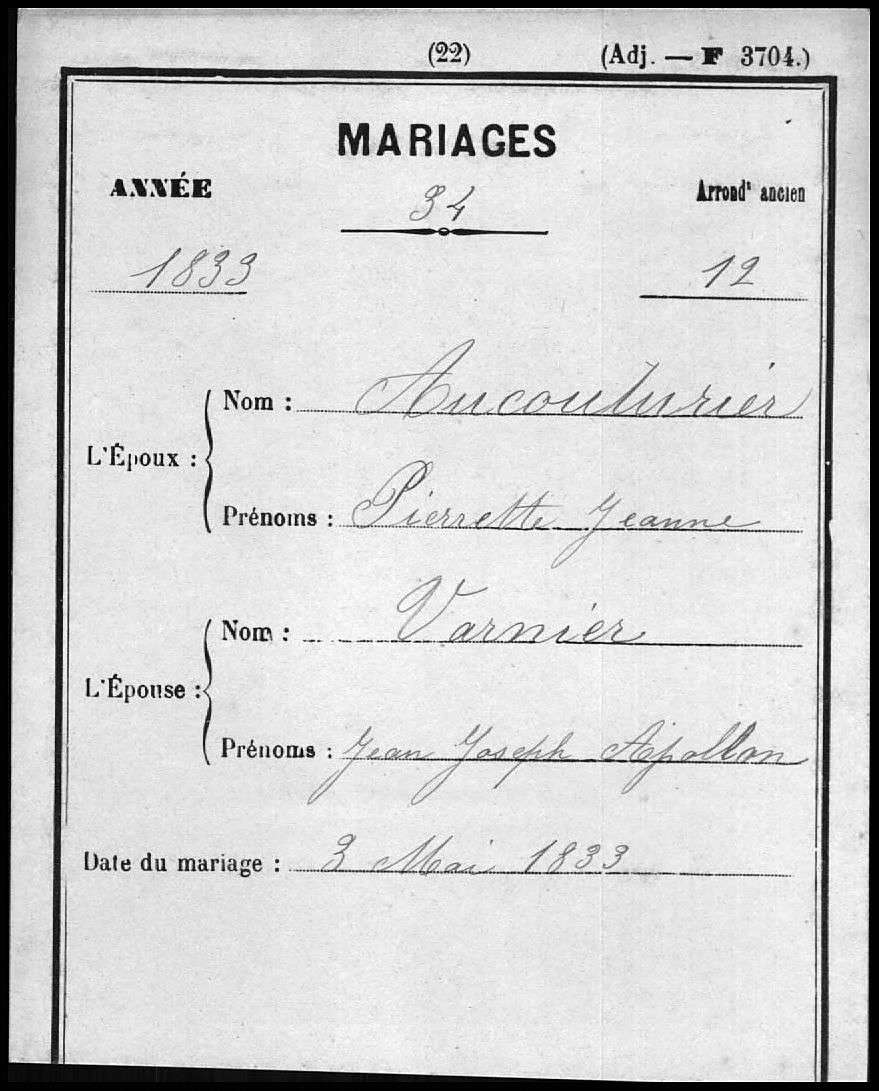 (22) (Adj. — F 3704.)
MARIAGES
ANNÉE 34 Arrondt ancien
1833 12
Nom : Aucouturier
L'Époux :
Prénoms : Pierrette Jeanne
Nom : Varnier
L'Épouse :
Prénoms : Jean Joseph Apollon
Date du mariage : 3 Mai 1833